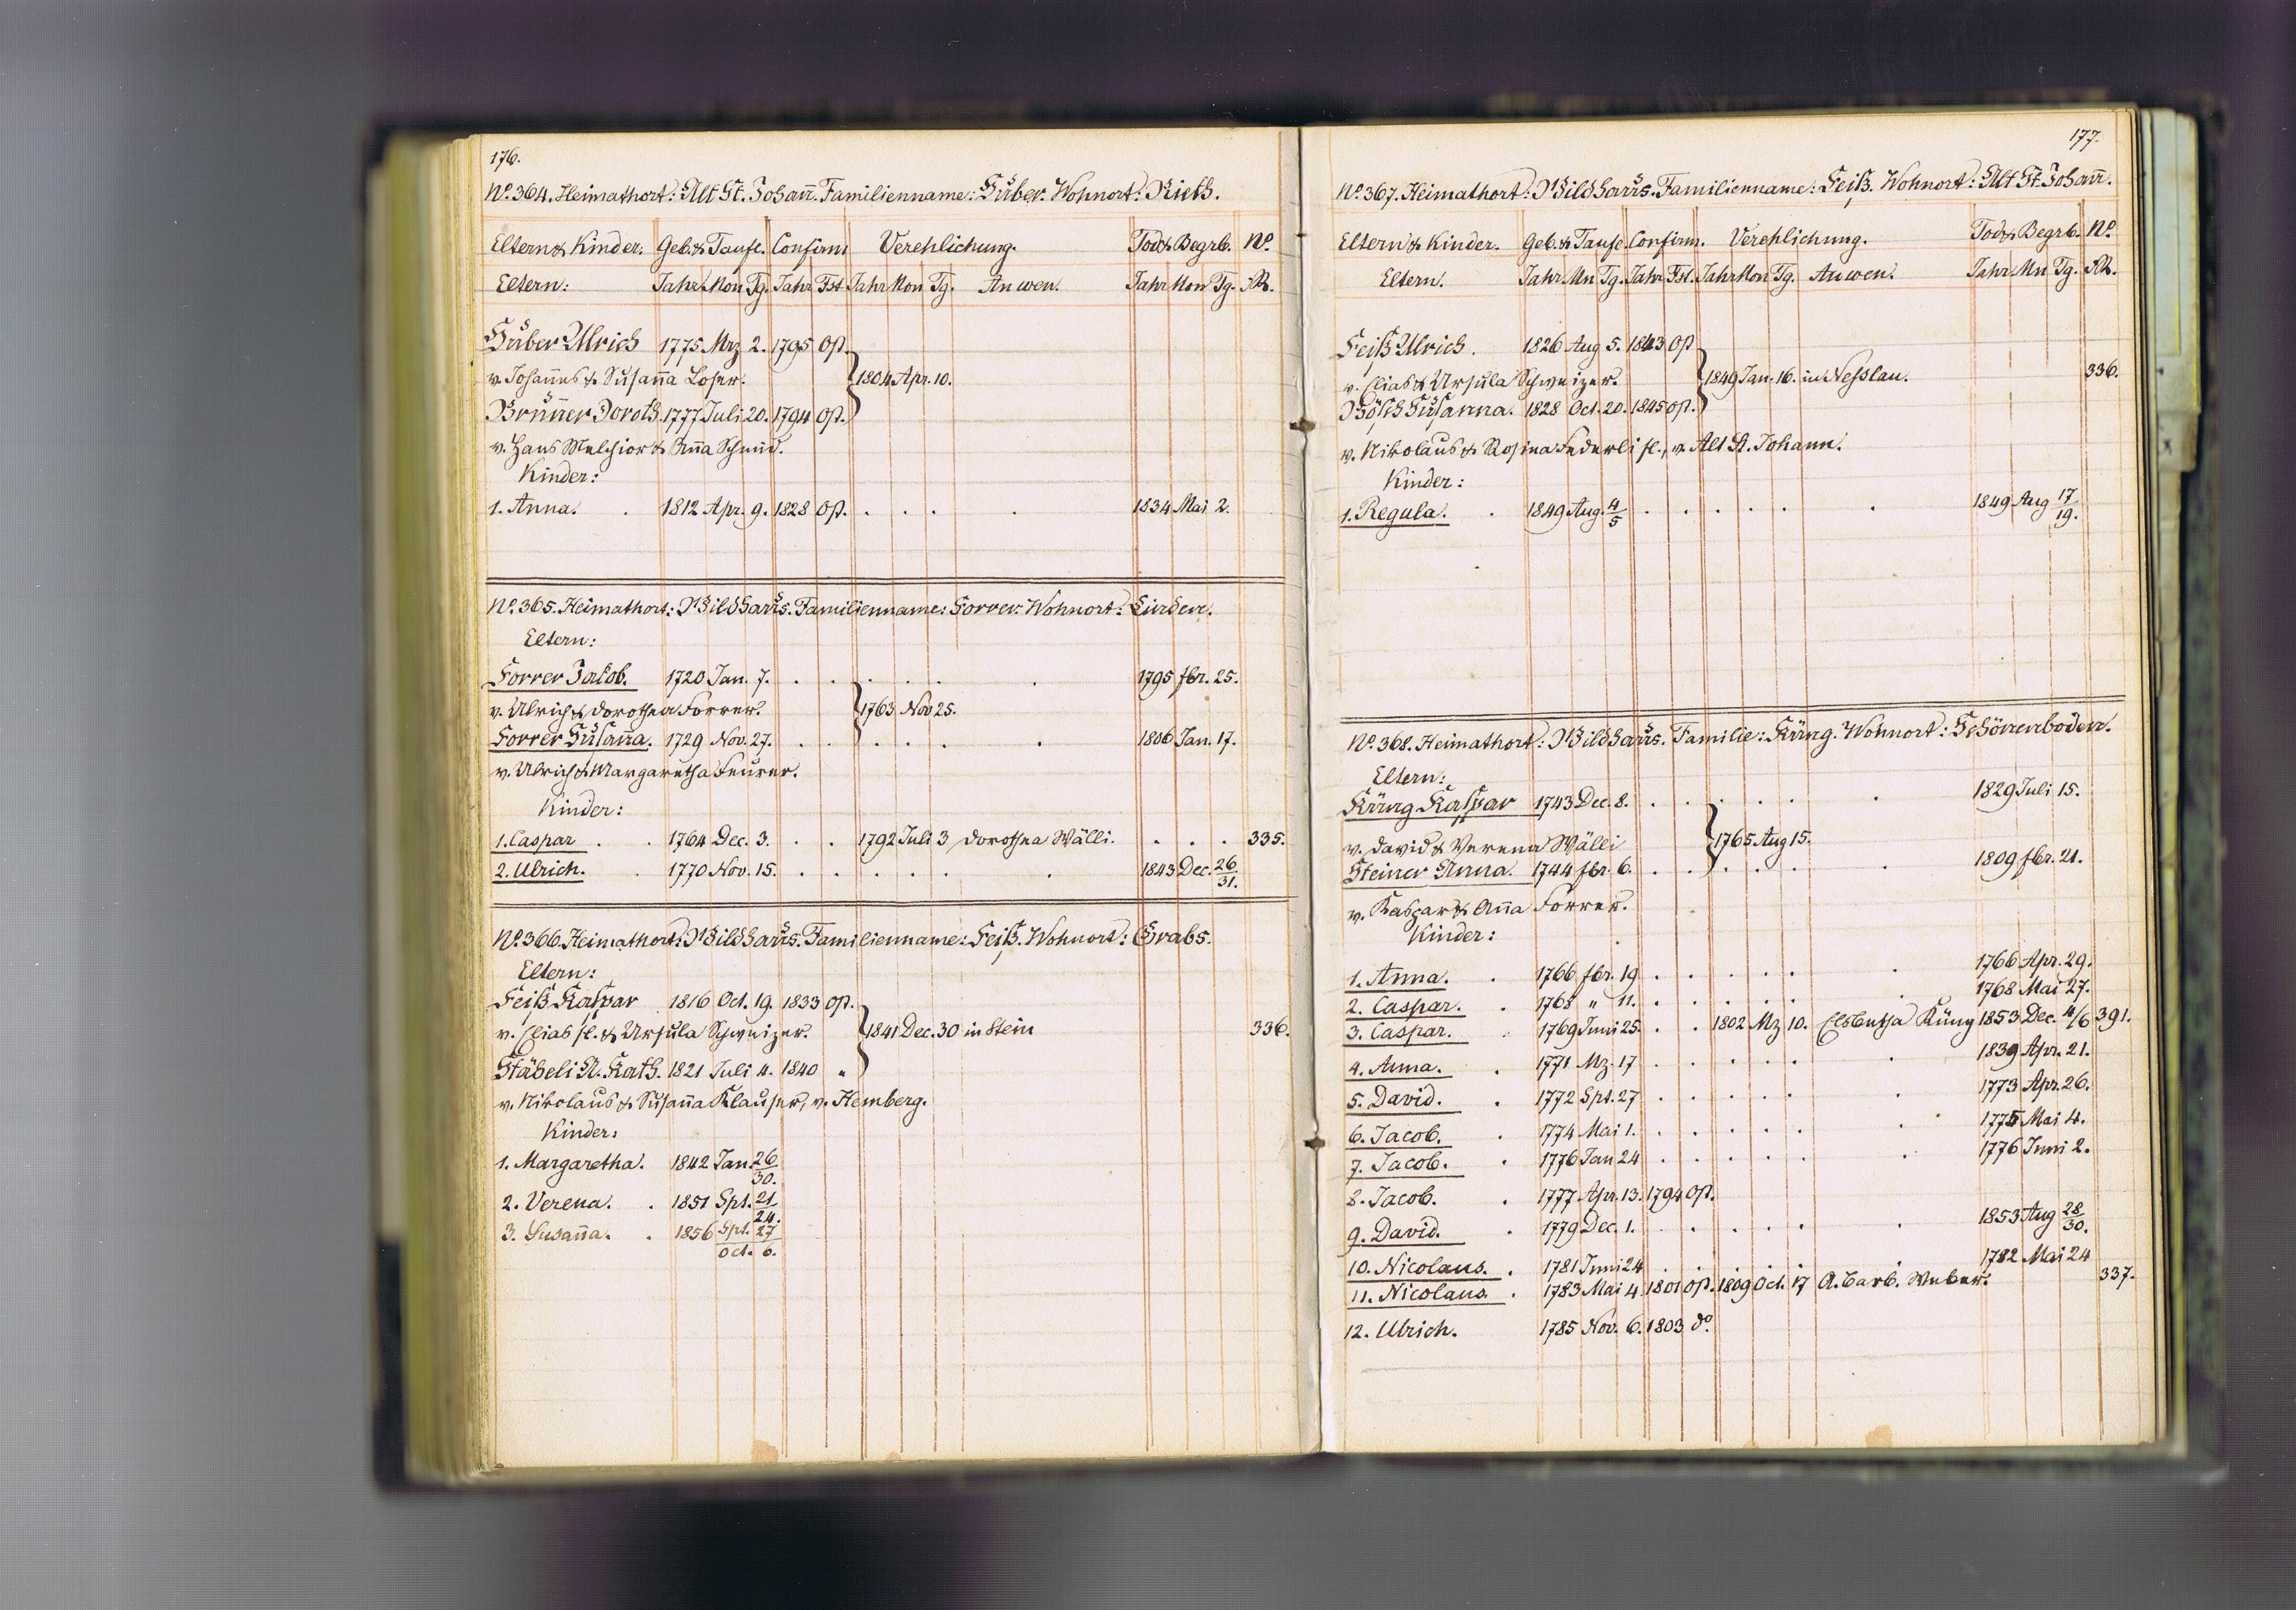 176.
No. 364. Heimathort: Alt St. Johañ. Familienname: Huber. Wohnort: Rieth.
Eltern & Kinder. Geb. & Taufe. Confirm Verehlichung. Tod & Begrb. No.
Eltern: Jahr Mon Tg. Jahr Fst Jahr Mon Tg. An wen. Jahr Mon Tg. Rb.
Huber Ulrich 1775 Mrz 2. 1795 Op.
v. Johañes & Susaña Loser. 1804 Apr. 10.
Bruñer Doroth. 1777 Juli 20. 1794 Op.
v. Hans Melchior & Aña Schmid.
Kinder:
1. Anna. 1812 Apr. 9. 1828 Op. 1834 Mai 2.
No. 365. Heimathort: Wildhaus. Familienname: Forrer. Wohnort: Linden.
Eltern:
Forrer Jakob. 1720 Jan. 7. 1795 fbr. 25.
v. Ulrich & Dorothea Forrer. 1763 Nov 25.
Forrer Susaña. 1729 Nov. 27. 1806 Jan. 17.
v. Ulrich & Margaretha Feurer.
Kinder:
1. Caspar 1764 Dec. 3. 1792 Juli 3 Dorothea Wälli. 335.
2. Ulrich. 1770 Nov. 15. 1843 Dec. 26/31.
No. 366. Heimathort: Wildhaus. Familienname: Feiß. Wohnort: Grabs.
Eltern:
Feiß Kaspar 1816 Oct. 19. 1833 Op.
v. Elias sl. & Ursula Schweizer. 1841 Dec. 30 in Stein 336.
Stäheli A. Kath. 1821 Juli 4. 1840 "
v. Nikolaus & Susaña Klauser, v. Hemberg.
Kinder:
1. Margaretha. 1842 Jan. 26/30.
2. Verena. 1851 Spt. 21/24.
3. Susaña. 1856 Spt. 27/Oct. 6.
177.
No. 367. Heimathort: Wildhaus. Familienname: Feiß. Wohnort: Alt St. Johañ.
Eltern & Kinder. Geb. & Taufe. Confirm. Verehlichung. Tod & Begrb. No.
Eltern. Jahr Mn Tg. Jahr Fst. Jahr Mon Tg. An wen. Jahr Mn Tg. Rb.
Feiß Ulrich. 1826 Aug 5. 1843 Op
v. Elias & Ursula Schweizer. 1849 Jan. 16. in Nesslau. 336.
Bösch Susanna. 1828 Oct. 20. 1845 Op.
v. Nikolaus & Rosina Federli sl., v. Alt St. Johann.
Kinder:
1. Regula. 1849 Aug. 4/5 1849 Aug 17/19.
No. 368. Heimathort: Wildhaus. Familie: Küng. Wohnort: Schönenboden.
Eltern:
Küng Kaspar 1743 Dec. 8. 1829 Juli 15.
v. David & Verena Wälli 1765 Aug 15.
Steiner Anna. 1744 fbr. 6. 1809 fbr. 21.
v. Kaspar & Aña Forrer.
Kinder:
1. Anna. 1766 fbr. 19 1766 Apr. 29.
2. Caspar. 1768 " 11. 1768 Mai 27.
3. Caspar. 1769 Juni 25. 1802 Mz 10. Elsbetha Küng 1853 Dec. 4/6 391.
4. Anna. 1771 Mz. 17 1839 Apr. 21.
5. David. 1772 Spt. 27 1773 Apr. 26.
6. Jacob. 1774 Mai 1. 1775 Mai 4.
7. Jacob. 1776 Jan 24 1776 Juni 2.
8. Jacob. 1777 Apr. 13. 1794 Op.
9. David. 1779 Dec. 1. 1853 Aug 28/30.
10. Nicolaus. 1781 Juni 24 1782 Mai 24
11. Nicolaus. 1783 Mai 4 1801 Op. 1809 Oct. 17 A. Barb. Weber. 337.
12. Ulrich. 1785 Nov. 6. 1803 do.